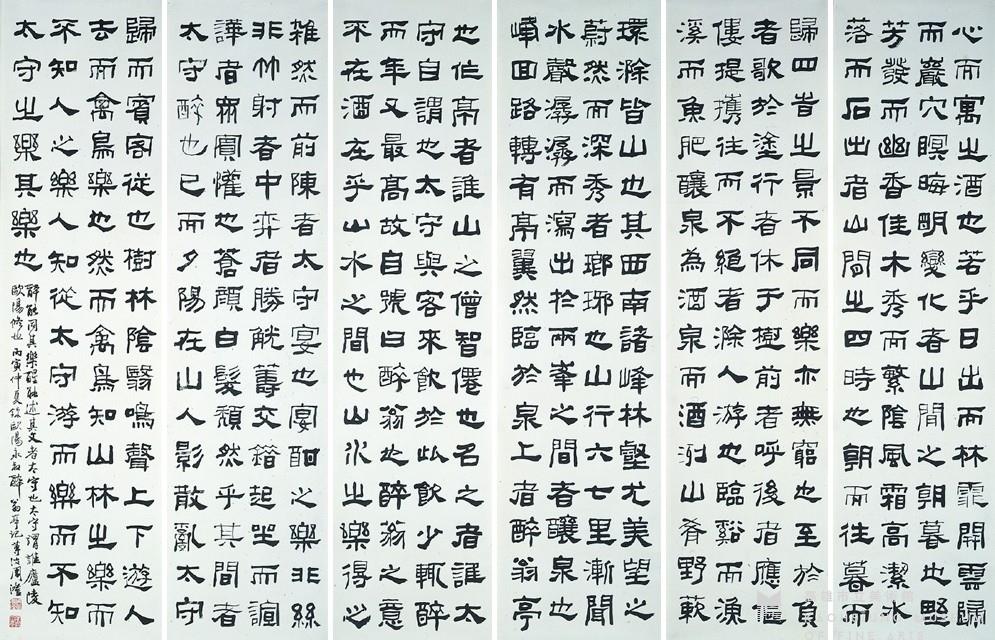 心而寓之酒也若乎日出而林霏開雲歸
而巖穴暝晦明變化者山間之朝暮也野
芳發而幽香佳木秀而繁陰風霜高潔水
落而石出者山間之四時也朝而往暮而
歸四旹之景不同而樂亦無窮也至於負
者歌於塗行者休于樹前者呼後者應傴
僂提攜往而不絕者滁人游也臨谿而漁
溪而魚肥釀泉為酒泉而酒洌山肴野蔌
環滁皆山也其西南諸峰林壑尤美望之
蔚然而深秀者瑯琊也山行六七里漸聞
水聲潺潺而瀉出於兩峯之間者釀泉也
峰回路轉有亭翼然臨於泉上者醉翁亭
也作亭者誰山之僧智僊也名之者誰太
守自謂也太守與客來飲於此飲少輒醉
而年又最高故自號曰醉翁也醉翁之意
不在酒在乎山水之間也山水之樂得之
雜然而前陳者太守宴也宴酣之樂非絲
非竹射者中弈者勝觥籌交錯起坐而諠
譁者衆賓懽也蒼顏白髮頹然乎其間者
太守醉也已而夕陽在山人影散亂太守
歸而賓客從也樹林陰翳鳴聲上下遊人
去而禽鳥樂也然而禽鳥知山林之樂而
不知人之樂人知從太守游而樂而不知
太守之樂其樂也
醉能同其樂醒能述其文者太守也太守謂誰廬陵
歐陽修也 丙寅仲夏錄歐陽永叔醉翁亭記
高雄市立美術館
KAOHSIUNG MUSEUM
OF FINE ARTS